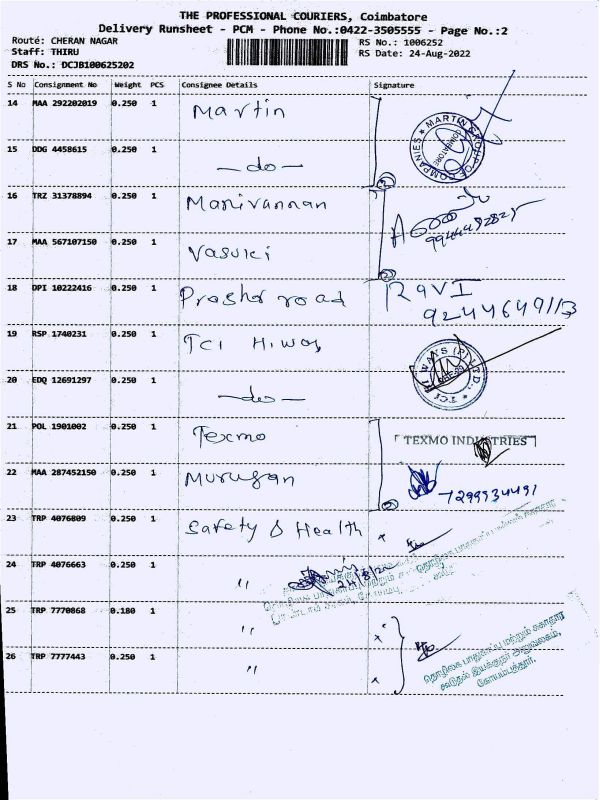 THE PROFESSIONAL COURIERS, Coimbatore
Delivery Runsheet - PCM - Phone No.:0422-3505555 - Page No.:2
Route: CHERAN NAGAR
RS No.: 1006252
Staff: THIRU
RS Date: 24-Aug-2022
DRS No.: DCJB100625202
S No Consignment No Weight PCS Consignee Details Signature
14 MAA 292202019 0.250 1 Martin
MARTIN GROUP OF COMPANIES
COIMBATORE
15 DDG 4458615 0.250 1 -do-
2
16 TRZ 31378894 0.250 1 Manivannan
17 MAA 567107150 0.250 1 Vasuki
2
18 DPI 10222416 0.250 1 Prashd road RAVI
9244649113
19 RSP 1740231 0.250 1 TCI Hiways
20 EDQ 12691297 0.250 1 -do-
21 POL 1901002 0.250 1 Texmo TEXMO INDUSTRIES
22 MAA 287452150 0.250 1 Murugan 7299934491
2
23 TRP 4076809 0.250 1 Safety & Health x
24 TRP 4076663 0.250 1 "
24/8/22
25 TRP 7770868 0.180 1 " x
26 TRP 7777443 0.250 1 " x
தொழிலக பாதுகாப்பு மற்றும் சுகாதார
கூடுதல் இயக்குநர் அலுவலகம்,
கோயம்புத்தூர்.